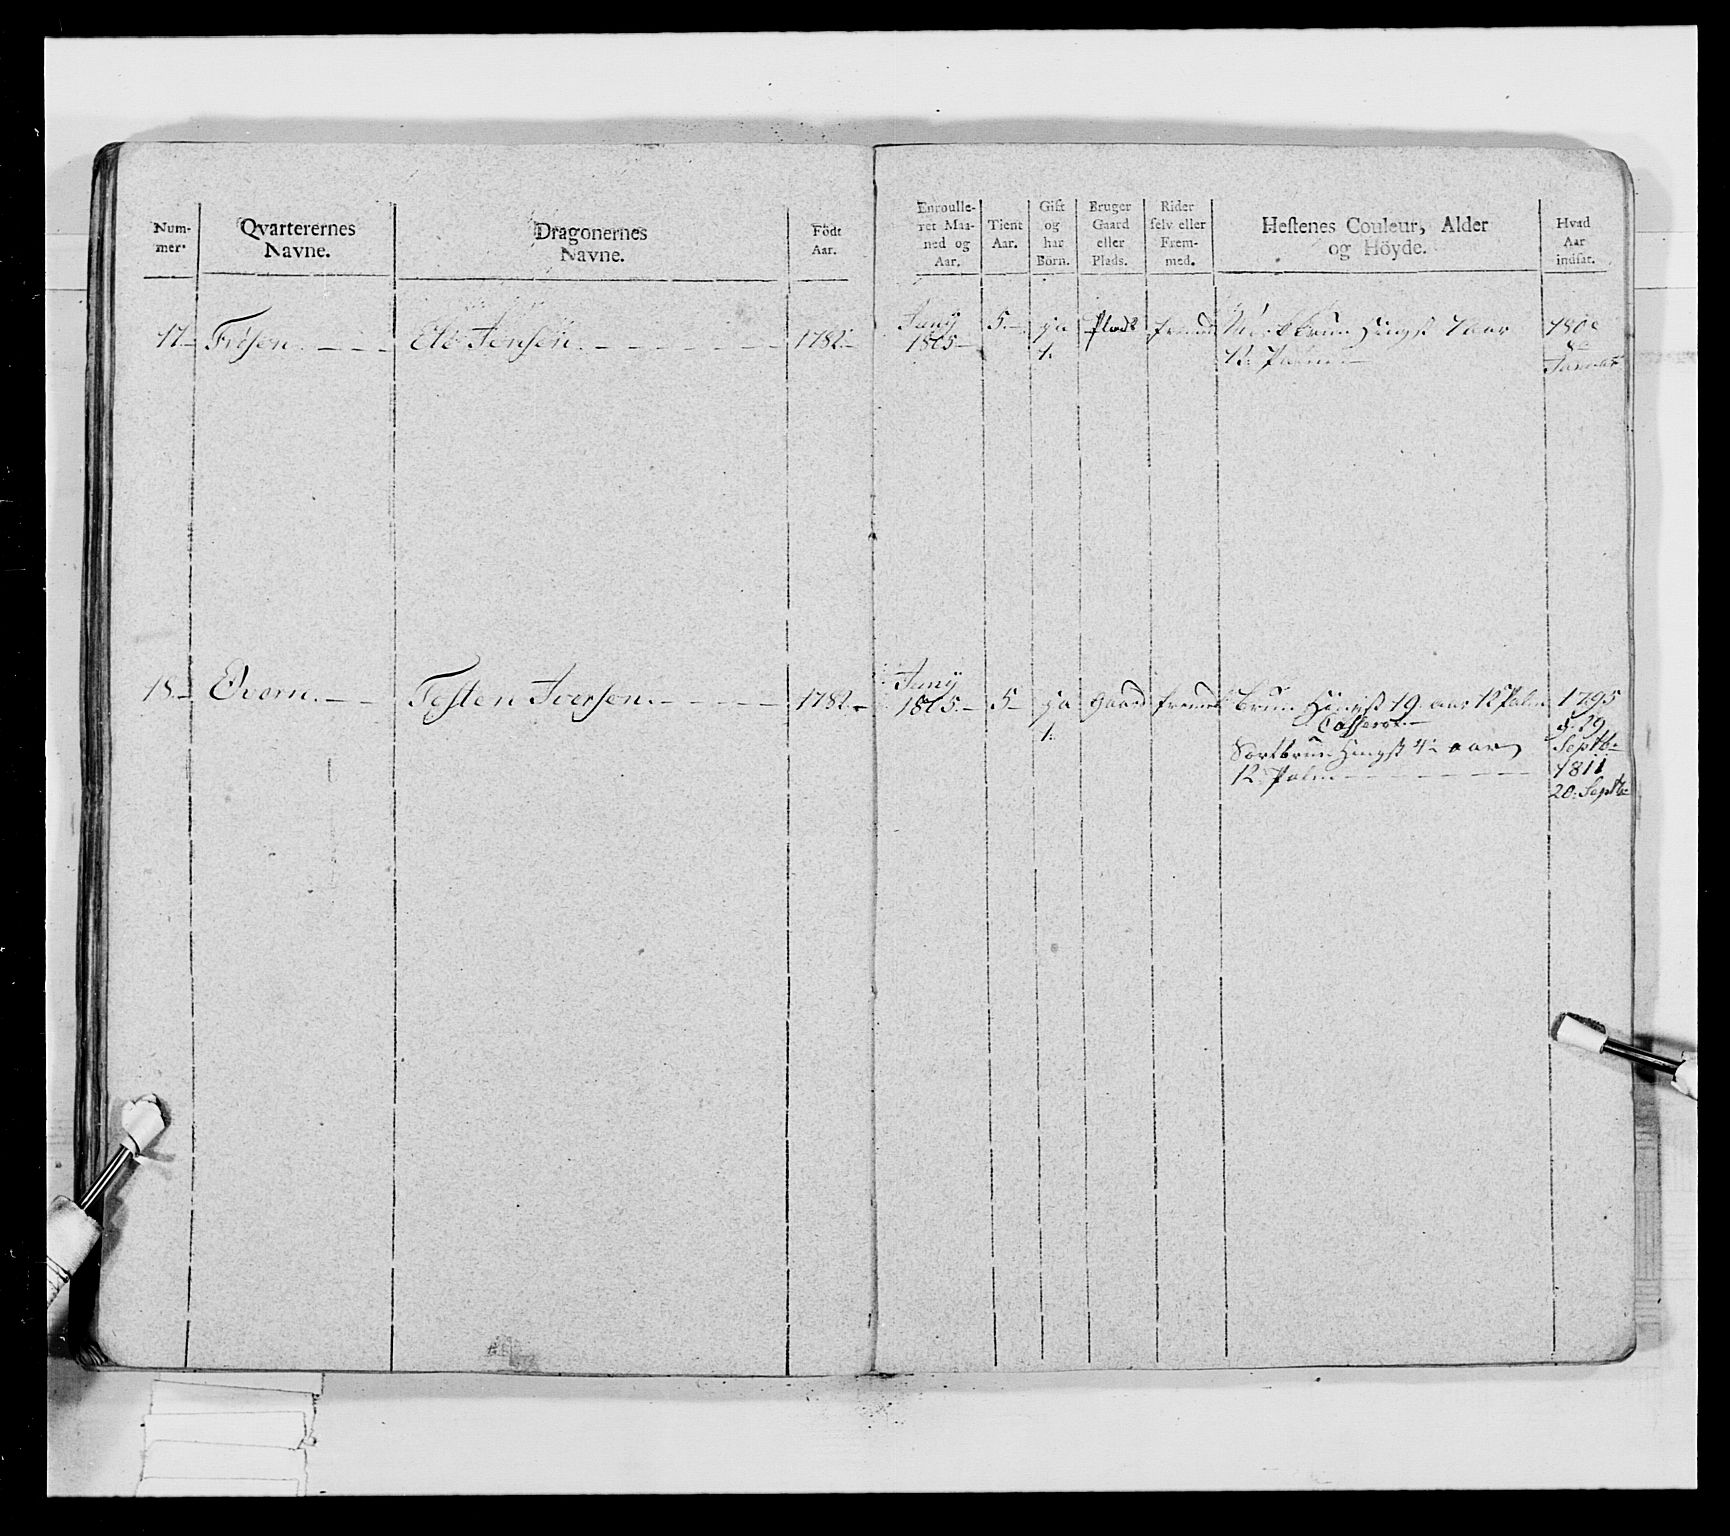 Num-
mer.
Qvarterernes
Navne.
Dragonernes
Navne.
Födt
Aar.
Enroulle-
ret Maa-
ned og
Aar.
Tient
Aar.
Gift
og
har
Börn.
Bruger
Gaard
eller
Plads.
Rider
selv eller
Frem-
med.
Hestenes Couleur, Alder
og Höyde.
Hvad
Aar
indsat.
17 Frösen Ele Jensen 1782 Juny 1805 5 ja 1. Plads fremd brun Hingst aar
12 Palm
Januar
18 Qvorn Testen Iversen 1782 Juny 1805 5 ja 1. Gaard fremd brun Hingst 19 aar 12 Palm 1795
Casseret
d. 29
Septbr
Sortbrun Hingst 4 aar
12 Palm
1811
20. Septbr